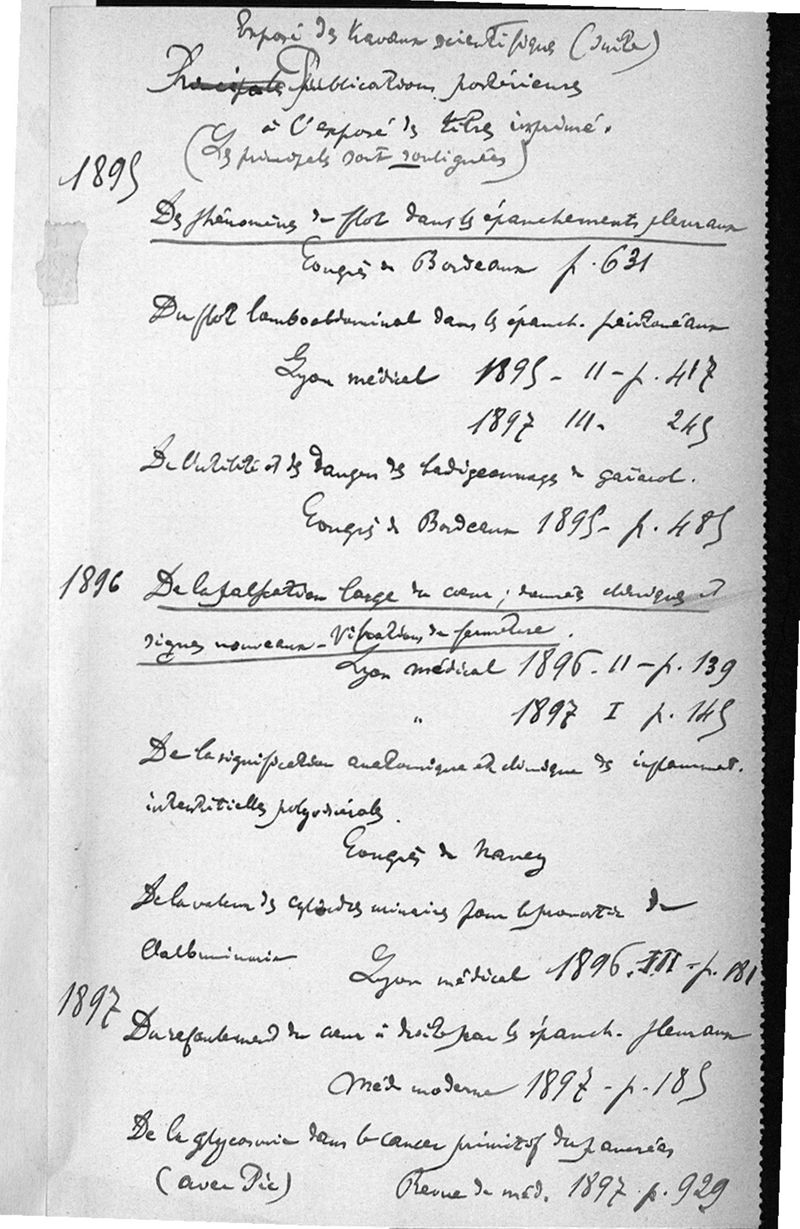 Exposé des travaux scientifiques (suite)
Principales Publications postérieures
à l'exposé des titres imprimé.
(Les principales sont soulignées)
1895
Des phénomènes du flot dans les épanchements pleuraux
Congrès de Bordeaux p. 631
Du flot lomboabdominal dans les épanch. péritonéaux
Lyon médical 1895 - II - p. 417
1897 III - 245
De l'utilité et des dangers des badigeonnages de gaïacol.
Congrès de Bordeaux 1895 - p. 485
1896 De la palpation large du cœur ; données cliniques et
signes nouveaux - Vibrations de fermeture.
Lyon médical 1896 - II - p. 139
" 1897 I p. 145
De la signification anatomique et clinique des inflammat.
interstitielles polyviscérales.
Congrès de Nancy
De la valeur des cylindres urinaires pour le pronostic de
l'albuminurie Lyon médical 1896. III - p. 181
1897
Du refoulement du cœur à droite par les épanch. pleuraux
Méd. moderne 1897 - p. 185
De la glycosurie dans le cancer primitif du pancréas
(avec Pic) Revue de méd. 1897 p. 929